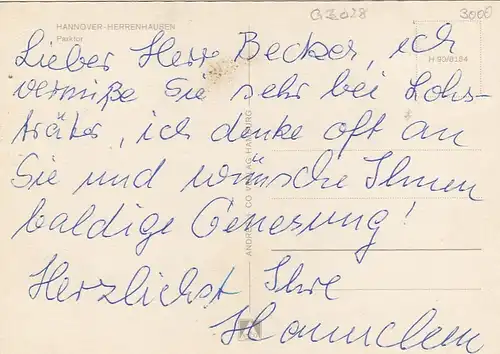 HANNOVER-HERRENHAUSEN
Parktor
G 3028
3000
H 90/8184
Lieber Herr Becker, ich
vermiße Sie sehr bei Lohs-
träter, ich denke oft an
Sie und wünsche Ihnen
baldige Genesung!
Herzlichst Ihre